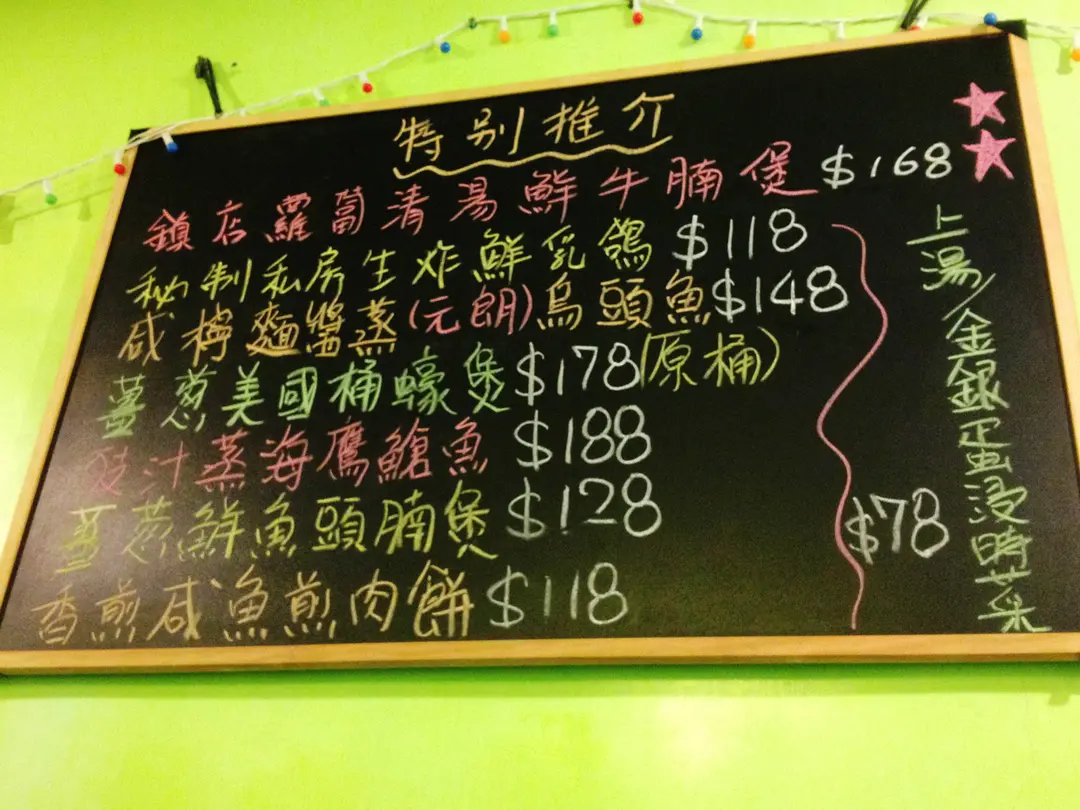 特别推介
鎮店蘿蔔清湯鮮牛腩煲 $168
秘制私房生炸鮮乳鴿 $118
咸檸麵醬蒸(元朗)烏頭魚 $148
薑葱美國桶蠔煲 $178(原桶)
豉汁蒸海鷹鯧魚 $188
薑葱鮮魚頭腩煲 $128
香煎咸魚煎肉餅 $118
上湯/金銀蛋浸時菜
$78